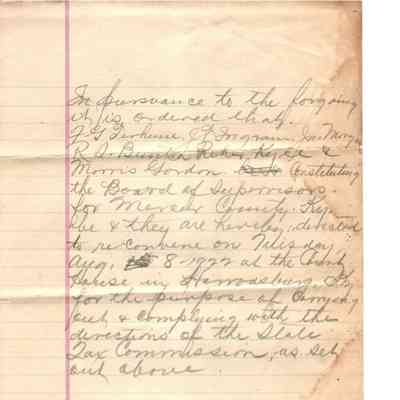 In pursuance to the forgoing
it is ordered that.
F G Terhune, J T Ingram, Jno Morgan
R. A. Kyle &
Morris Gordon. Constituting
the Board of Supervisors
for Mercer County Ky-
be & they are hereby, directed
to re-convene on Tuesday
Aug. 8 1922 at the Court
House in Harrodsburg, Ky
for the purpose of Carrying
out & complying with the
directions of the State
Tax Commission, as set
out above.